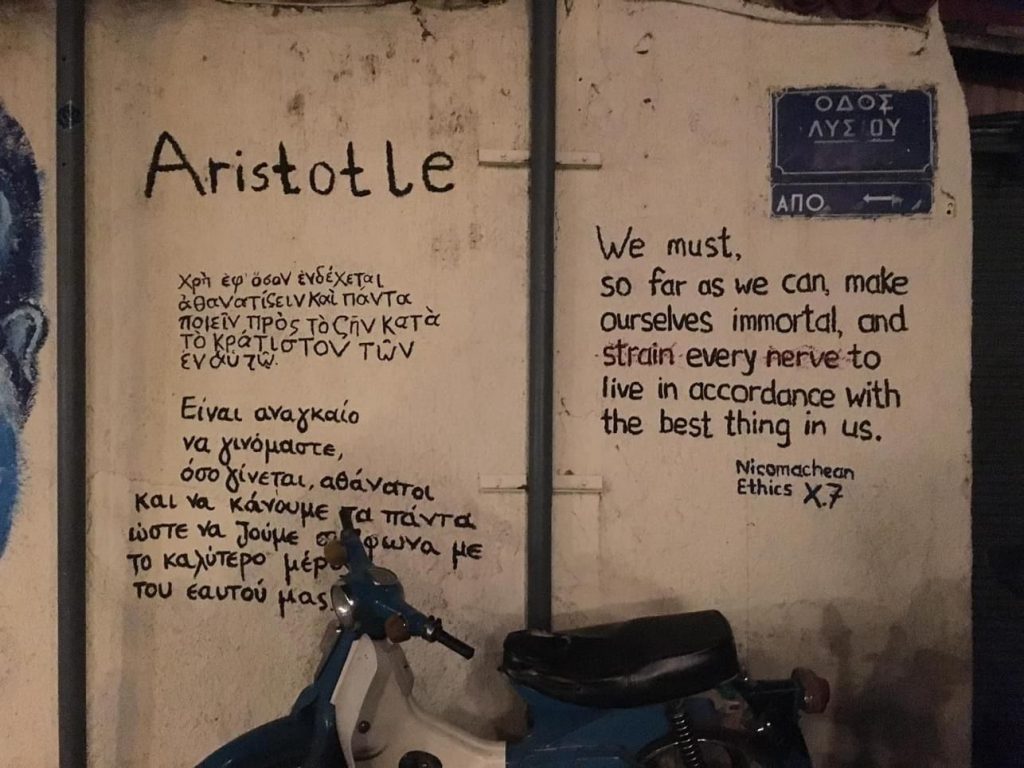 Aristotle
χρὴ ἐφ' ὅσον ἐνδέχεται
ἀθανατίζειν καὶ πάντα
ποιεῖν πρὸς τὸ ζῆν κατὰ
τὸ κράτιστον τῶν
ἐν αὑτῷ.
Είναι αναγκαίο
να γινόμαστε,
όσο γίνεται, αθάνατοι
και να κάνουμε τα πάντα
ώστε να ζούμε με
το καλύτερο
του εαυτού μας
ΟΔΟΣ
ΛΥΣΙΟΥ
ΑΠΟ
We must,
so far as we can, make
ourselves immortal, and
strain every nerve to
live in accordance with
the best thing in us.
Nicomachean
Ethics X.7